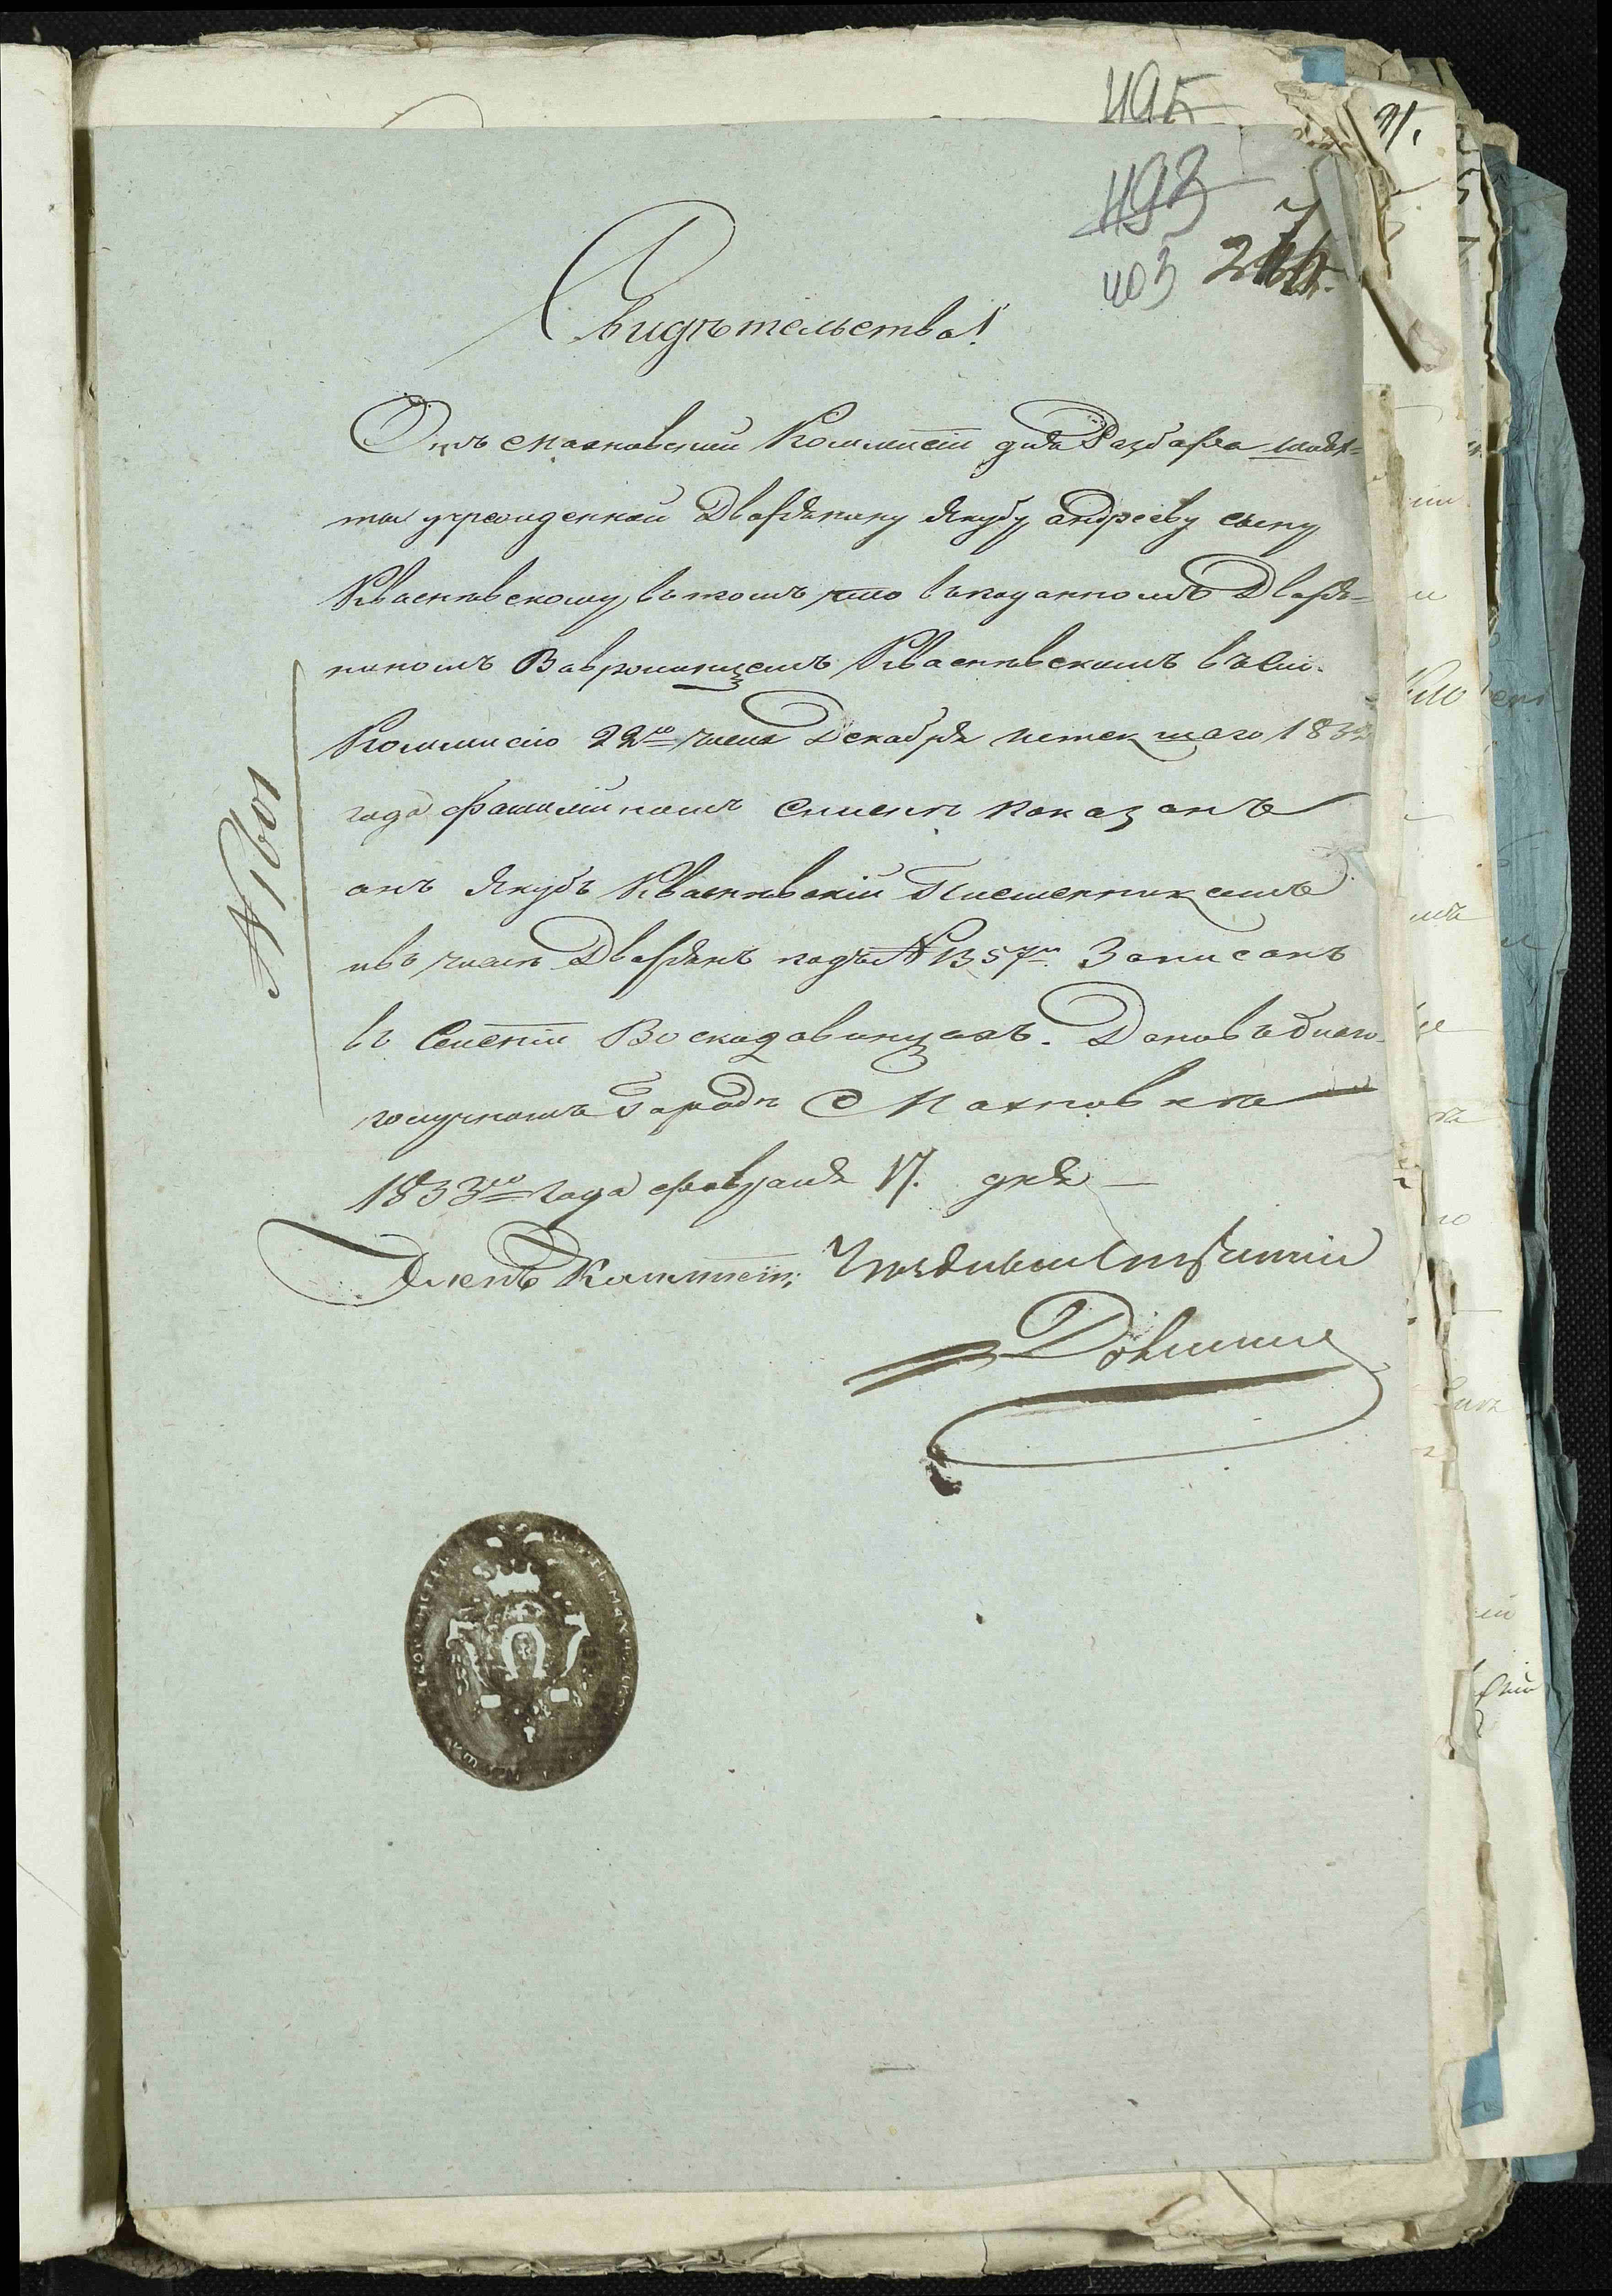 495
493
403
Свидѣтельство!
Отъ Махновской Коммисіи для Разбора шлях=
ты учрежденной Дворянину Якубу Андрееву сыну
Квасневскому въ томъ что въ поданномъ Дворя=
ниномъ Вавром Квасневскимъ въ сію
Коммисію 22го числа Декабря истекшаго 1832
года фамилійномъ Списки показанъ
онъ Якубъ Квасневскій Племенникомъ
и въ числѣ Дворянъ подъ № 1357м. Записанъ
въ Селеніи Воскодавинцахъ. Данъ въ благо=
получномъ Городѣ Махновкѣ
1833го года февраля 17. дня —
№ 1601
Членъ Коммисіи;